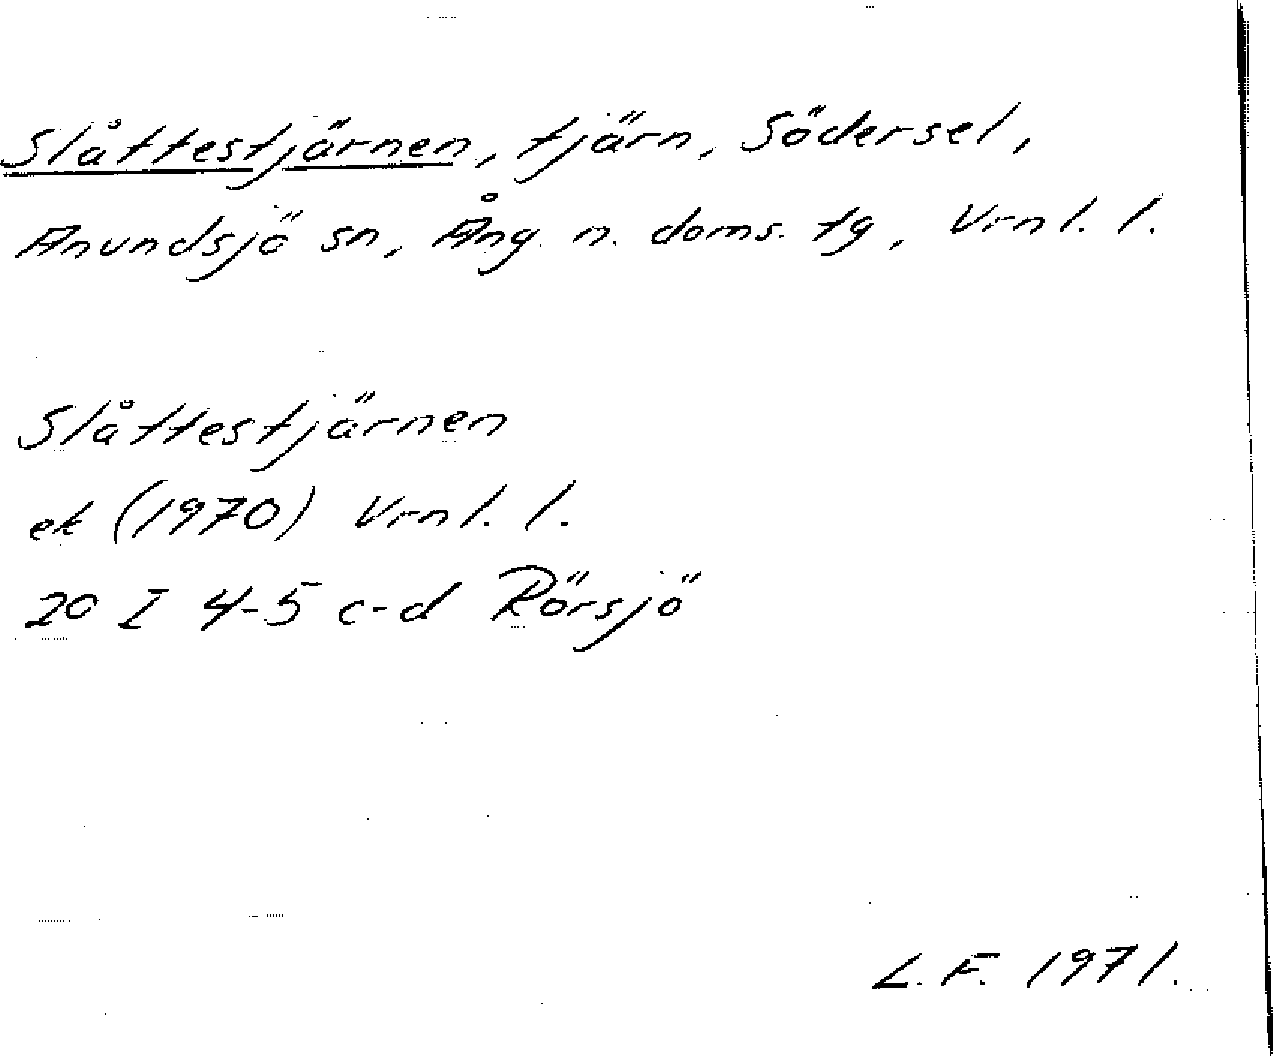 Slåttestjärnen, tjärn, Södersel,
Anundsjö sn, Ång. n. doms. tg, Vrnl. l.
Slåttestjärnen
ek (1970) Vrnl. l.
20 I 4-5 c-d Rörsjö
L. F. 1971.